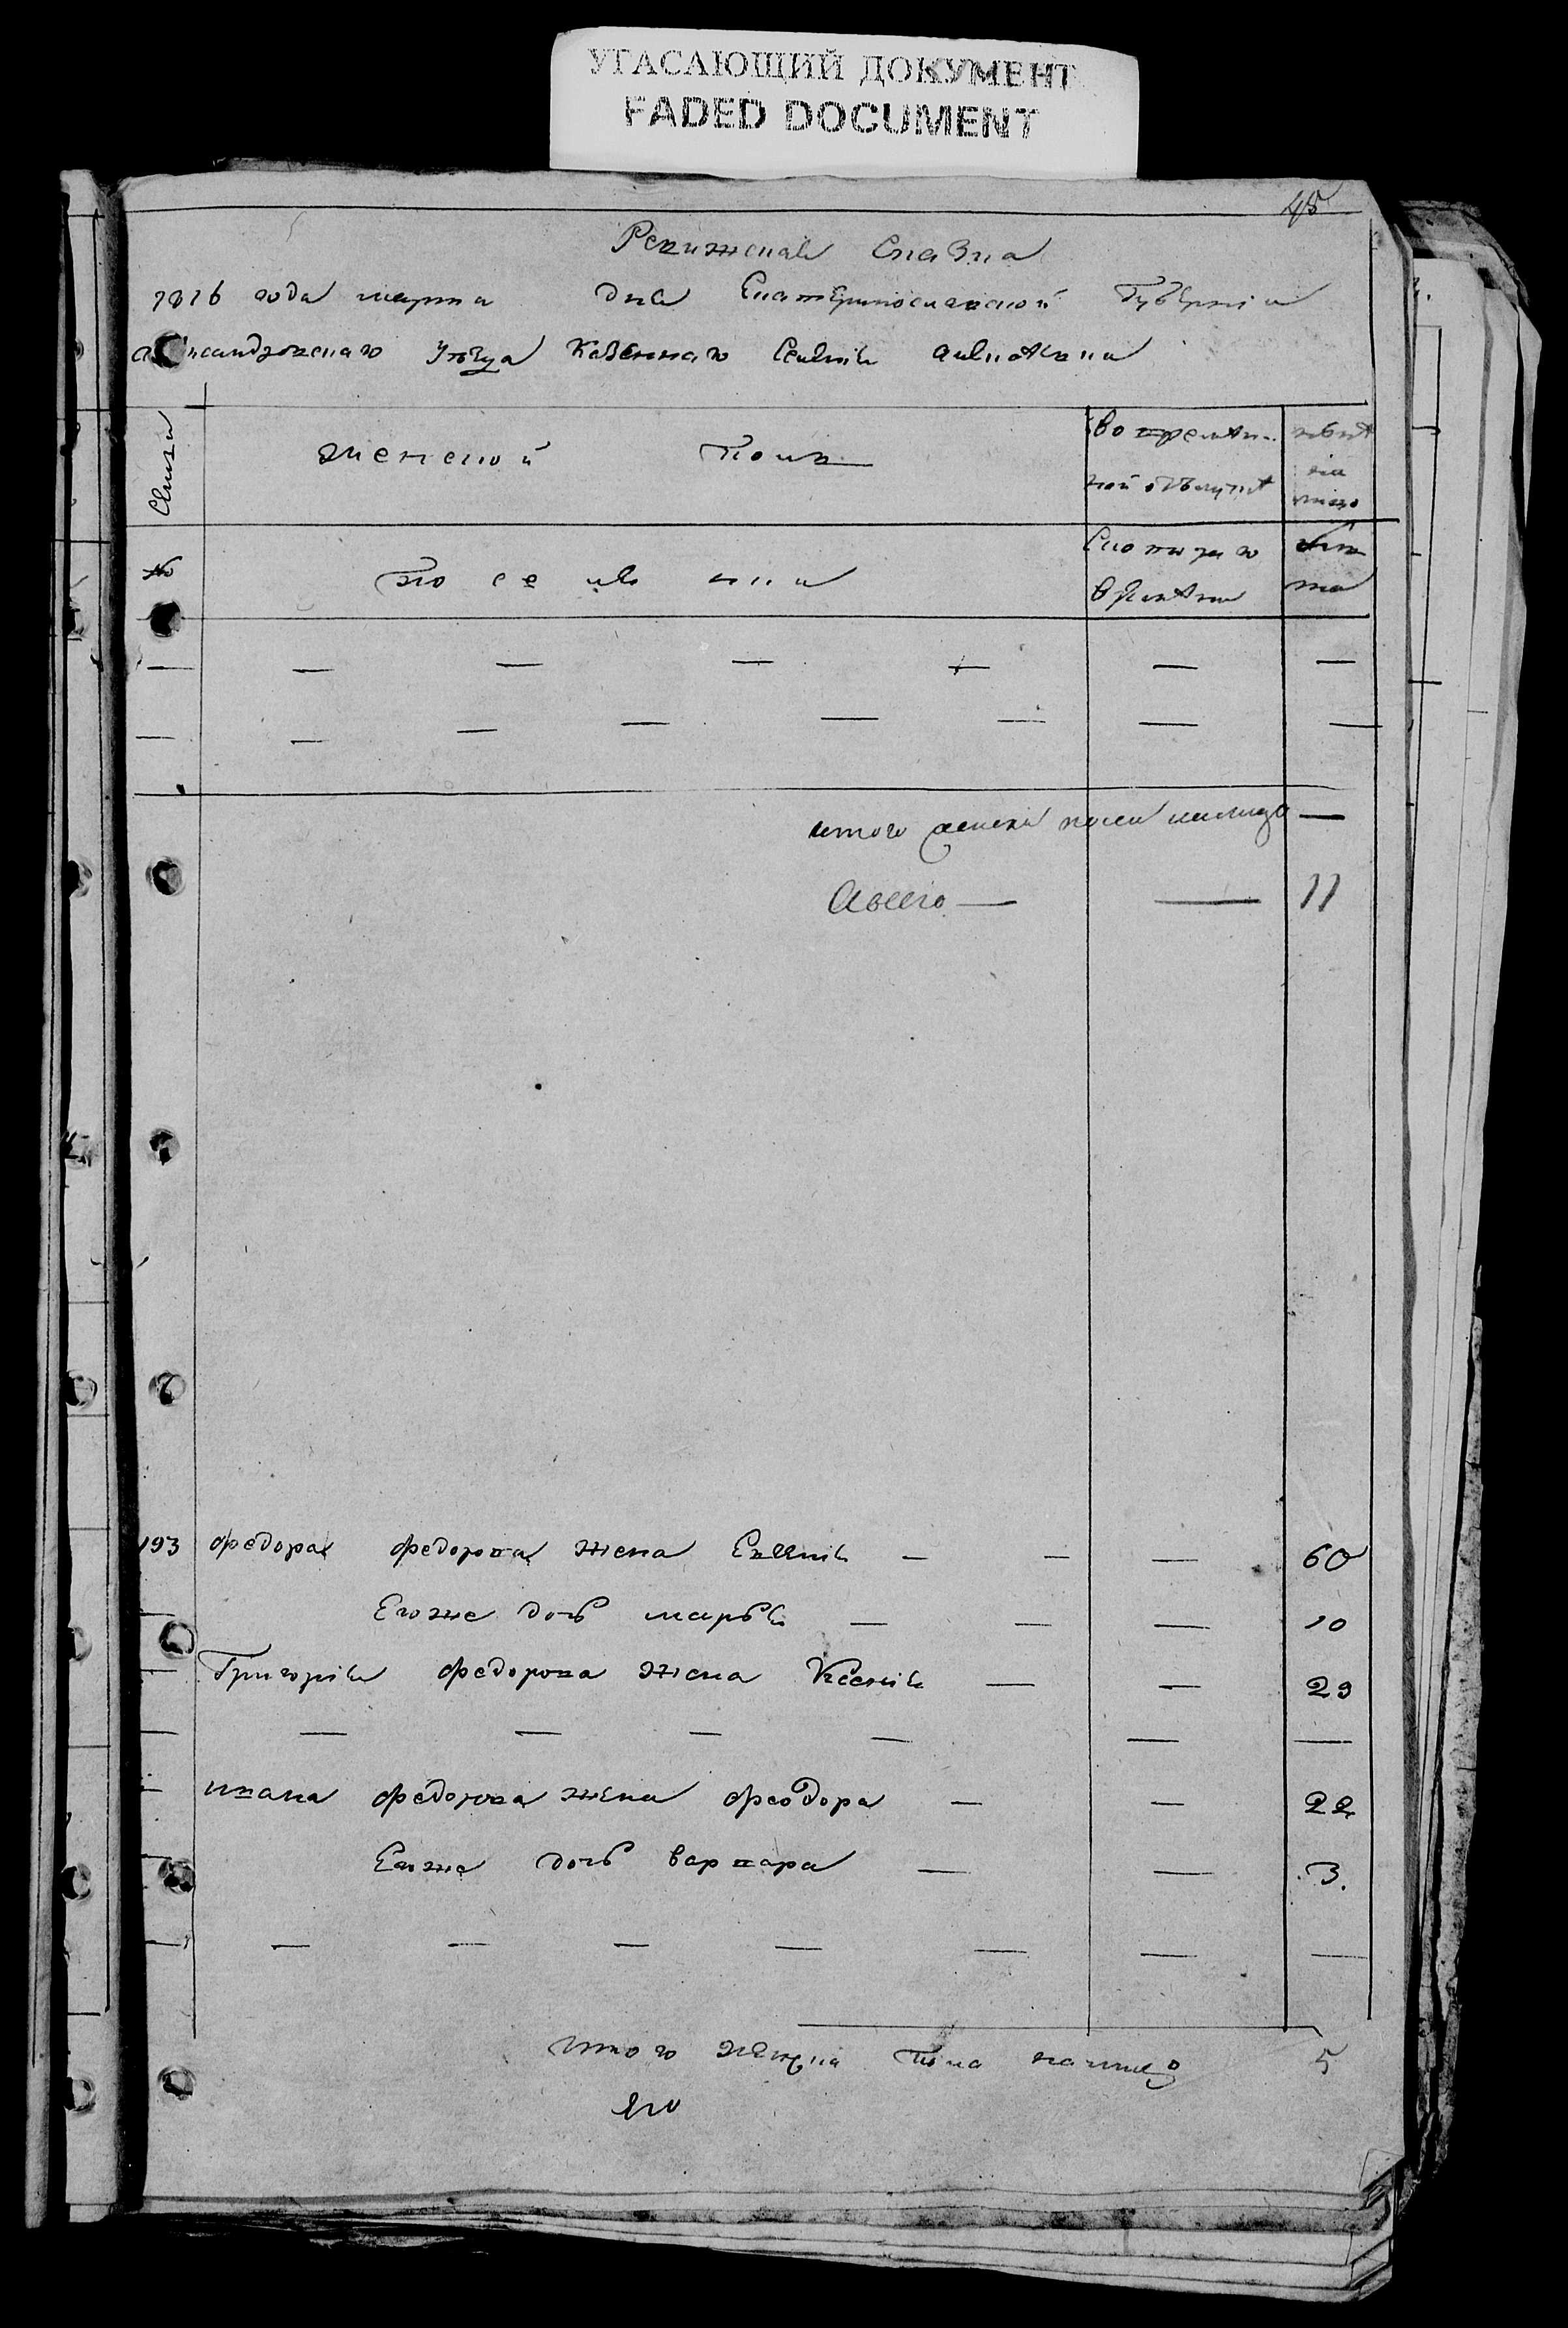 УГАСАЮЩИЙ ДОКУМЕНТ
FADED DOCUMENT
45
Ревижская Сказка
1816 года марта дня Екатеринославской Губерніи
Александровскаго Уезда Казеннаго Селенія
Семьи
женской Полъ
во временной отлучке
ныне на лицо
№
поселяне
С которого времени
лета
— — — — — —
— — — — — — —
итого женска пола налицо —
Авсего — — 11
193 федора федорова жена Евгенія — — — 60
Егоже дочь марья — — — 10
Григорія федорова жена Ксенія — — 29
— — — — — —
ивана федорова жена феодора — — 22
Егоже дочь варвара — — 3.
— — — — — — —
итого женска пола налицо 5